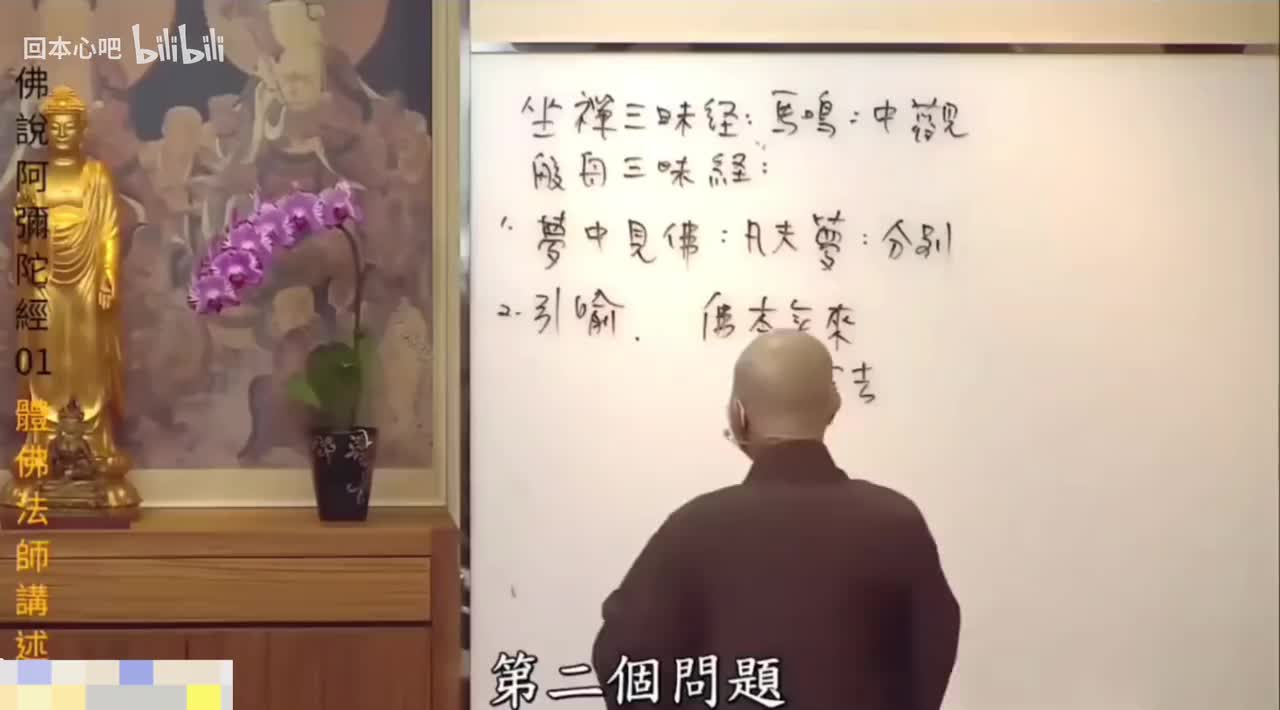 回本心吧 bilibili
佛說阿彌陀經01 體佛法師講述
坐禪三昧経:馬鳴:中觀
般舟三昧経:
1. 夢中見佛:凡夫夢:分別
2. 引喻. 佛本 來
去
第二個問題